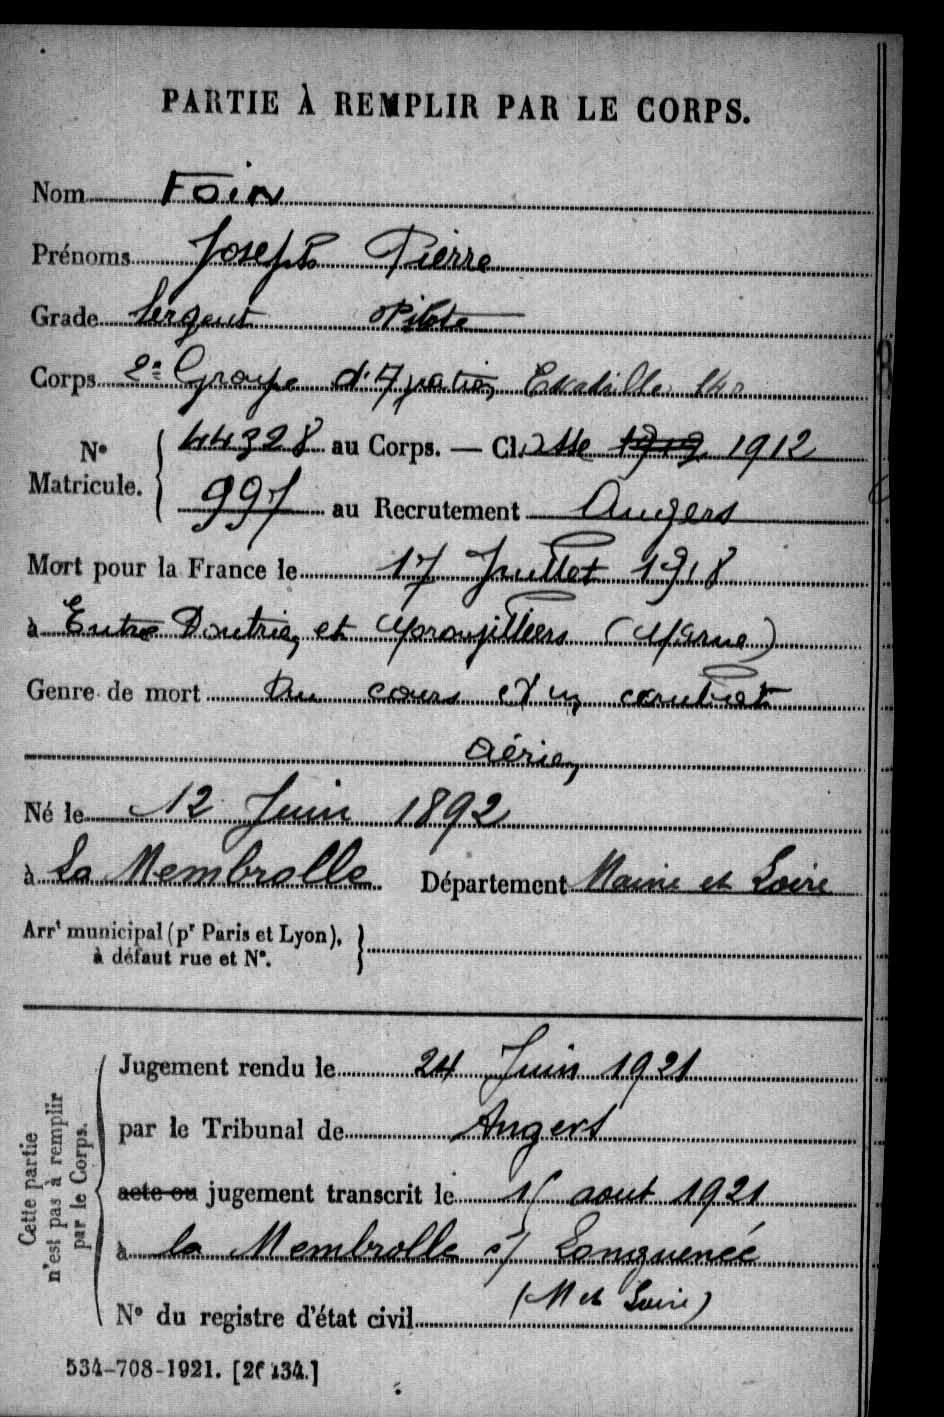 PARTIE À REMPLIR PAR LE CORPS.
Nom FOIN
Prénoms Joseph Pierre
Grade Sergent Pilote
Corps 2e Groupe d'Aviation Escadrille 140
N° Matricule. 44328 au Corps. — Classe 1912 1912
997 au Recrutement Angers
Mort pour la France le 17 Juillet 1918
à Entre Dontrien et Mronvilliers (Marne)
Genre de mort Au cours d'un combat
Aérien
Né le 12 Juin 1892
à La Membrolle Département Maine et Loire
Arrt municipal (pr Paris et Lyon),
à défaut rue et N°.
Cette partie
n'est pas à remplir
par le Corps.
Jugement rendu le 24 Juin 1921
par le Tribunal de Angers
acte ou jugement transcrit le aout 1921
à la Membrolle s/ Longuenée
(M et Loire)
N° du registre d'état civil
534-708-1921. [26134.]